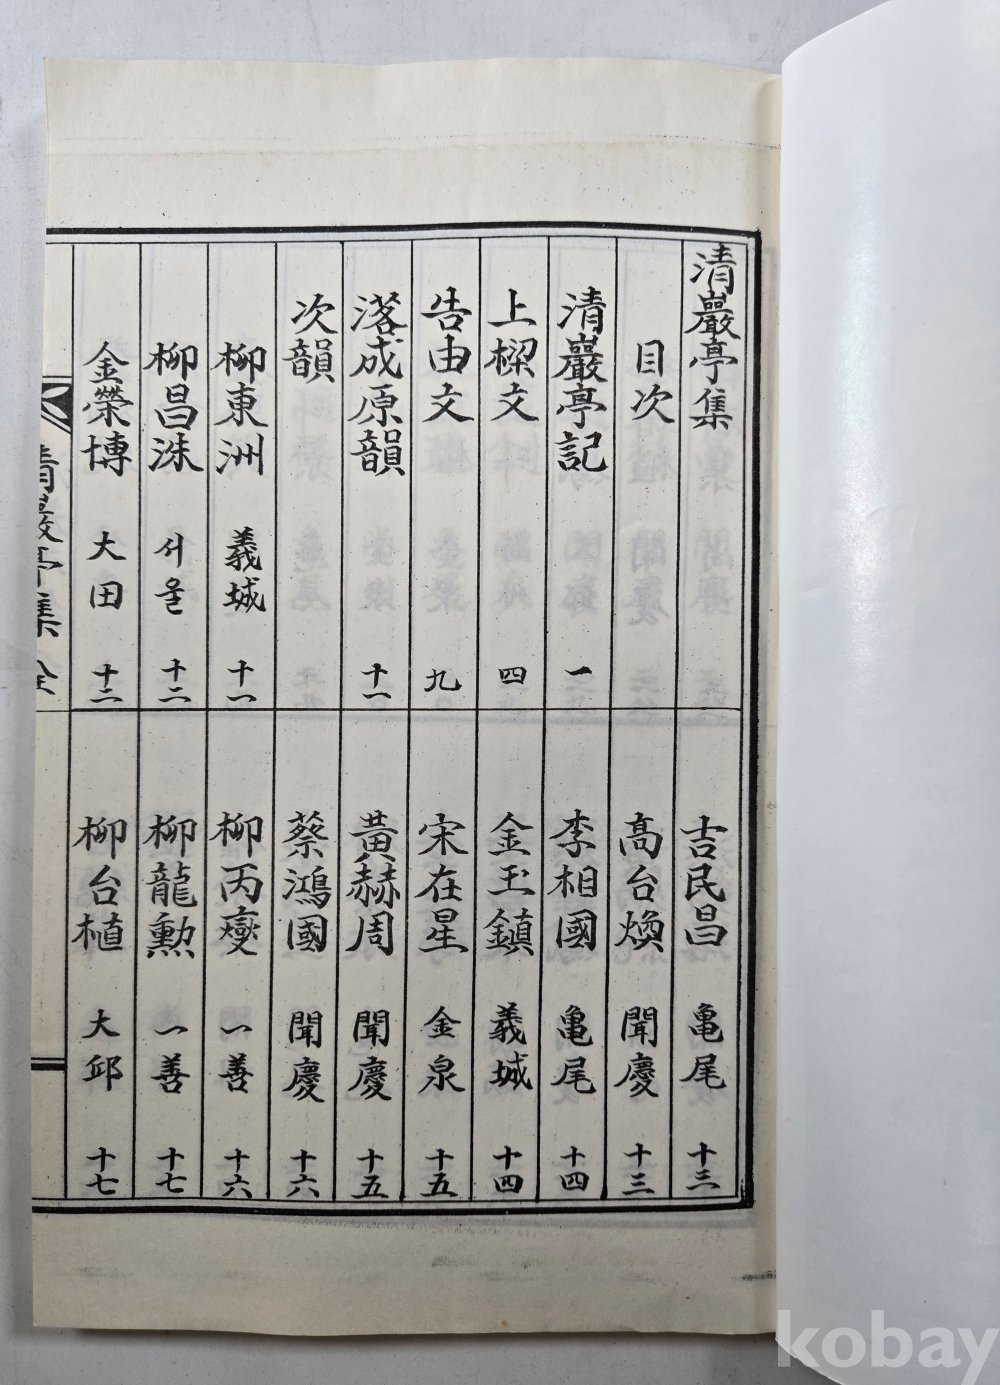 清巖亭集
目次
清巖亭記 一
上樑文 四
告由文 九
落成原韻 十一
次韻
柳東洲 義城 十一
柳昌洙 서울 十二
金榮博 大田 十二
吉民昌 亀尾 十三
高台煥 聞慶 十三
李相國 亀尾 十四
金玉鎮 義城 十四
宋在星 金泉 十五
黃赫周 聞慶 十五
蔡鴻國 聞慶 十六
柳丙燮 一善 十六
柳龍勳 一善 十七
柳台植 大邱 十七
清巖亭集 全
kobay